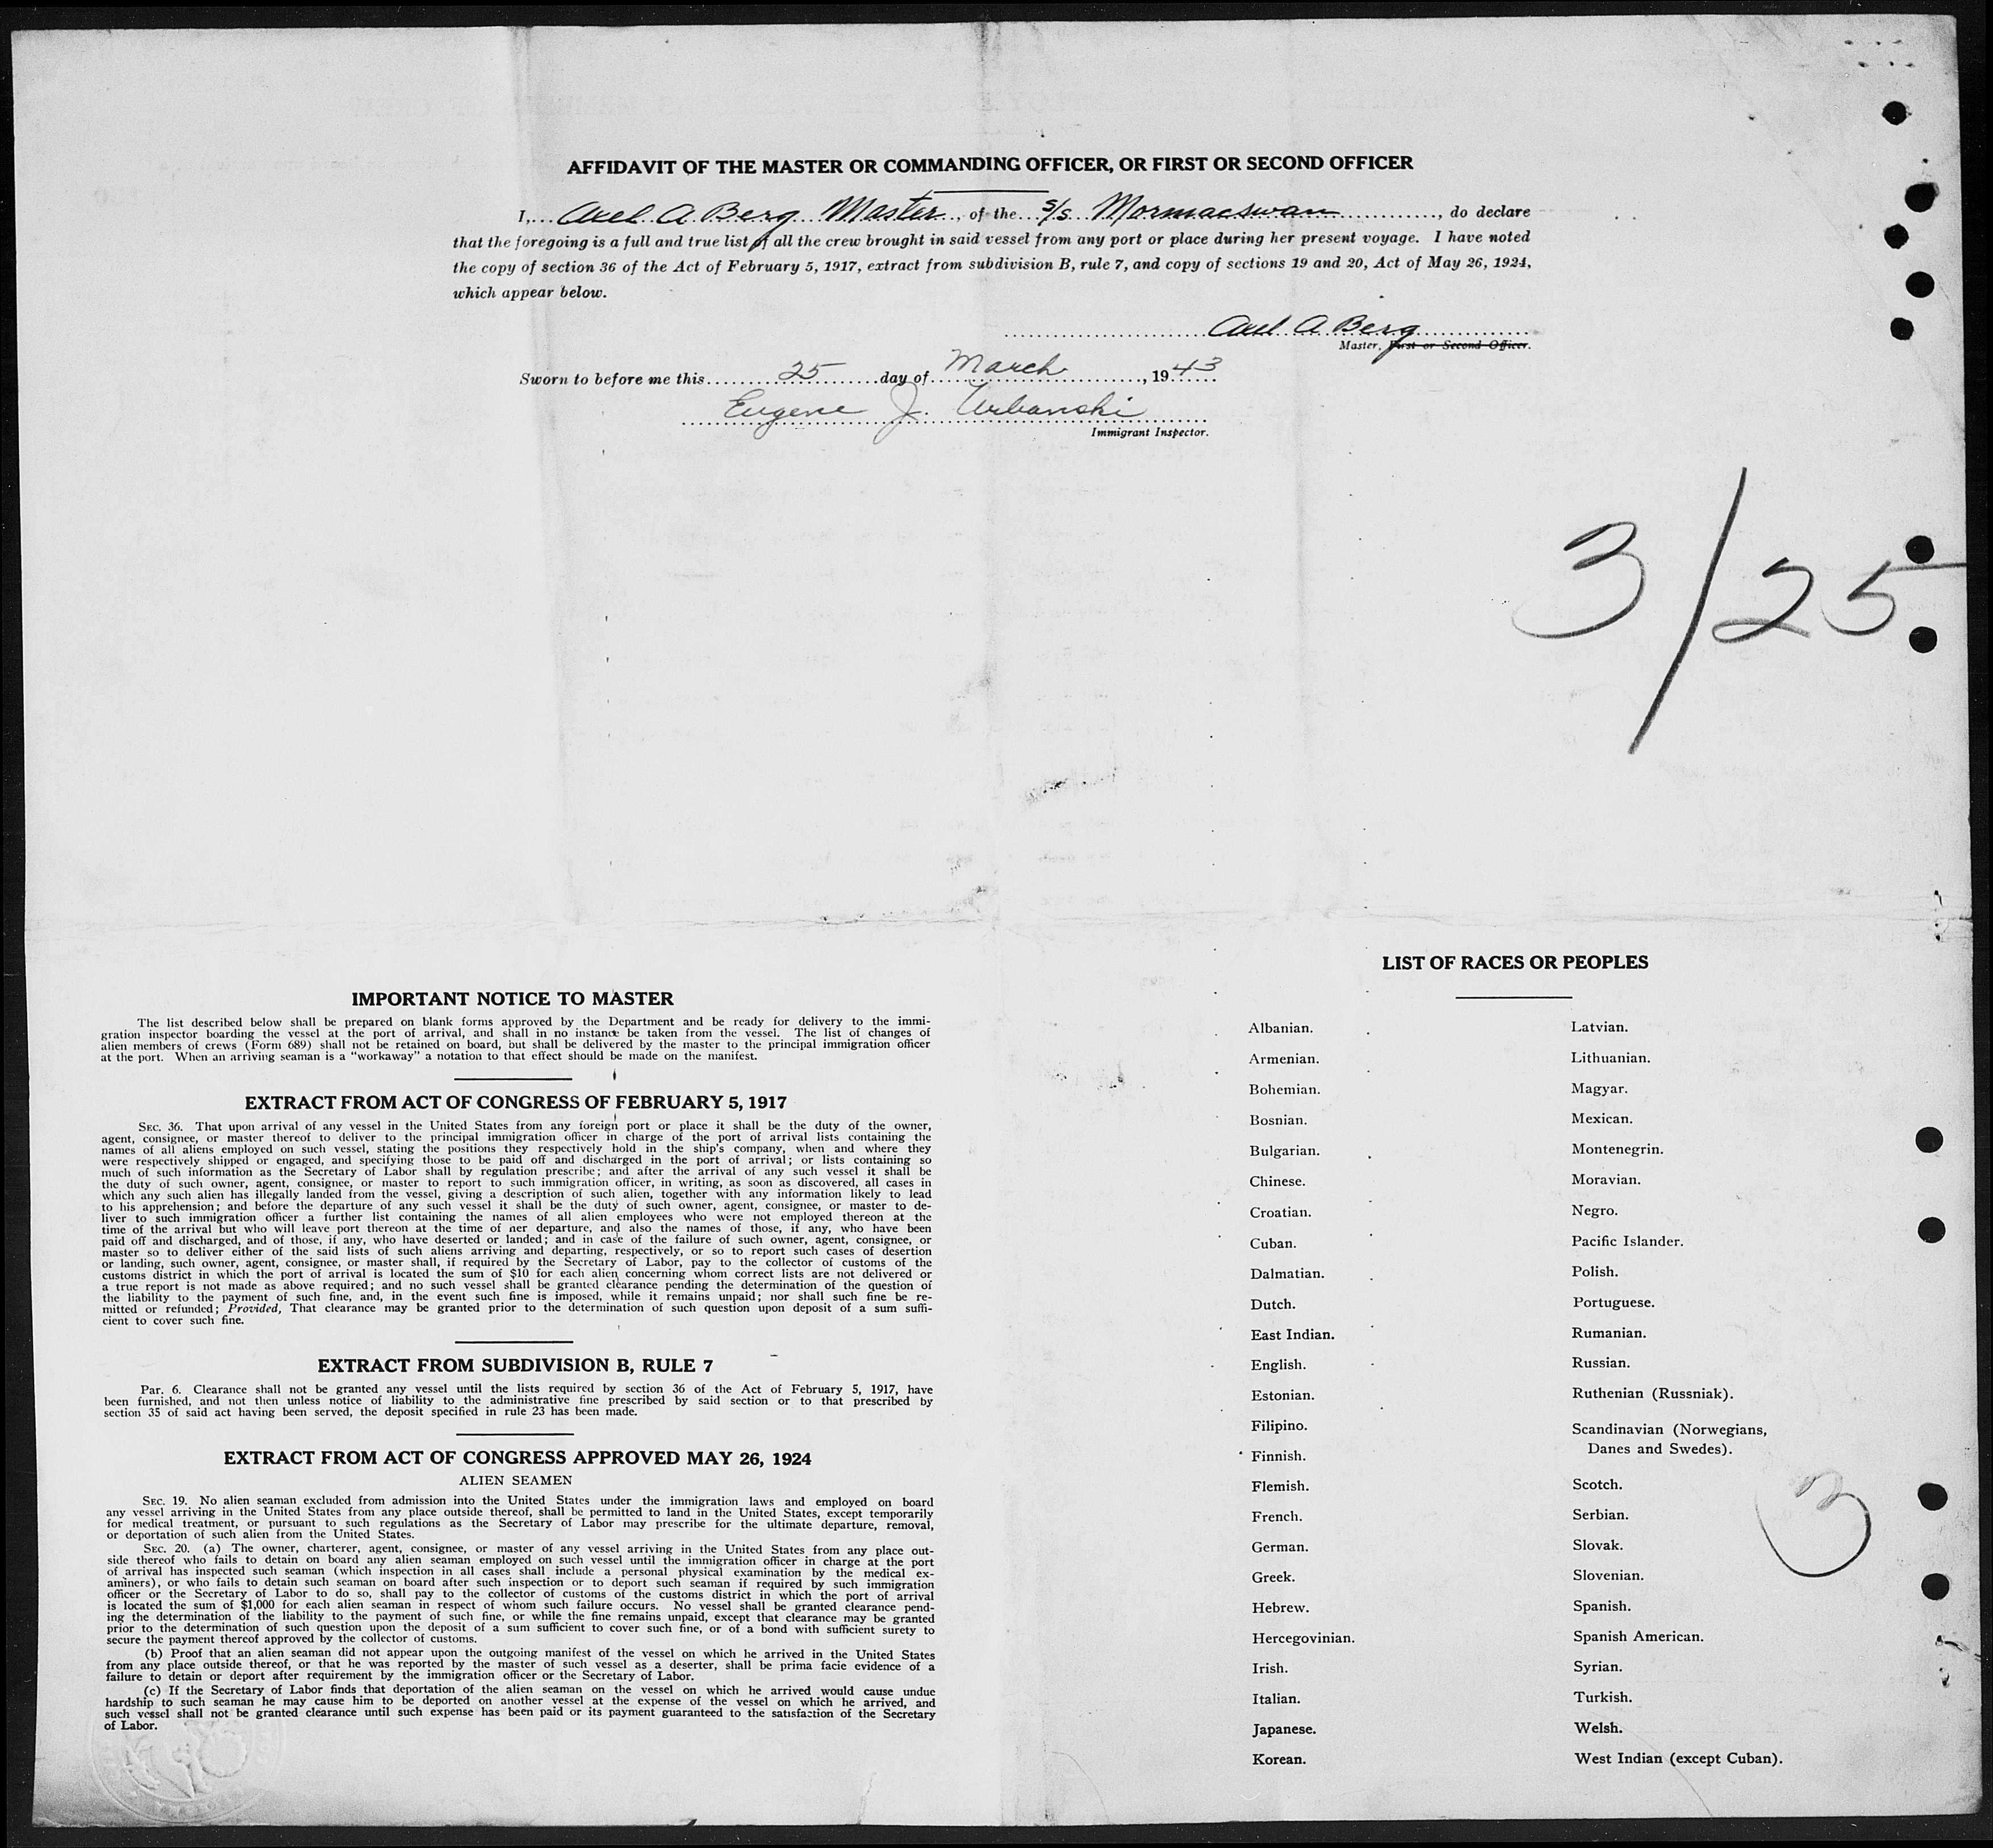 AFFIDAVIT OF THE MASTER OR COMMANDING OFFICER, OR FIRST OR SECOND OFFICER
I, Axel A Berg Master, of the s/s Mormacswan, do declare
that the foregoing is a full and true list of all the crew brought in said vessel from any port or place during her present voyage. I have noted
the copy of section 36 of the Act of February 5, 1917, extract from subdivision B, rule 7, and copy of sections 19 and 20, Act of May 26, 1924,
which appear below.
Axel A Berg
Master, First or Second Officer.
Sworn to before me this 25 day of March, 1943
Eugene J. Urbanski
Immigrant Inspector.
3/25
IMPORTANT NOTICE TO MASTER
The list described below shall be prepared on blank forms approved by the Department and be ready for delivery to the immi-
gration inspector boarding the vessel at the port of arrival, and shall in no instance be taken from the vessel. The list of changes of
alien members of crews (Form 689) shall not be retained on board, but shall be delivered by the master to the principal immigration officer
at the port. When an arriving seaman is a "workaway" a notation to that effect should be made on the manifest.
EXTRACT FROM ACT OF CONGRESS OF FEBRUARY 5, 1917
SEC. 36. That upon arrival of any vessel in the United States from any foreign port or place it shall be the duty of the owner,
agent, consignee, or master thereof to deliver to the principal immigration officer in charge of the port of arrival lists containing the
names of all aliens employed on such vessel, stating the positions they respectively hold in the ship's company, when and where they
were respectively shipped or engaged, and specifying those to be paid off and discharged in the port of arrival; or lists containing so
much of such information as the Secretary of Labor shall by regulation prescribe; and after the arrival of any such vessel it shall be
the duty of such owner, agent, consignee, or master to report to such immigration officer, in writing, as soon as discovered, all cases in
which any such alien has illegally landed from the vessel, giving a description of such alien, together with any information likely to lead
to his apprehension; and before the departure of any such vessel it shall be the duty of such owner, agent, consignee, or master to de-
liver to such immigration officer a further list containing the names of all alien employees who were not employed thereon at the
time of the arrival but who will leave port thereon at the time of her departure, and also the names of those, if any, who have been
paid off and discharged, and of those, if any, who have deserted or landed; and in case of the failure of such owner, agent, consignee, or
master so to deliver either of the said lists of such aliens arriving and departing, respectively, or so to report such cases of desertion
or landing, such owner, agent, consignee, or master shall, if required by the Secretary of Labor, pay to the collector of customs of the
customs district in which the port of arrival is located the sum of $10 for each alien concerning whom correct lists are not delivered or
a true report is not made as above required; and no such vessel shall be granted clearance pending the determination of the question of
the liability to the payment of such fine, and, in the event such fine is imposed, while it remains unpaid; nor shall such fine be re-
mitted or refunded; Provided, That clearance may be granted prior to the determination of such question upon deposit of a sum suffi-
cient to cover such fine.
EXTRACT FROM SUBDIVISION B, RULE 7
Par. 6. Clearance shall not be granted any vessel until the lists required by section 36 of the Act of February 5, 1917, have
been furnished, and not then unless notice of liability to the administrative fine prescribed by said section or to that prescribed by
section 35 of said act having been served, the deposit specified in rule 23 has been made.
EXTRACT FROM ACT OF CONGRESS APPROVED MAY 26, 1924
ALIEN SEAMEN
SEC. 19. No alien seaman excluded from admission into the United States under the immigration laws and employed on board
any vessel arriving in the United States from any place outside thereof, shall be permitted to land in the United States, except temporarily
for medical treatment, or pursuant to such regulations as the Secretary of Labor may prescribe for the ultimate departure, removal,
or deportation of such alien from the United States.
SEC. 20. (a) The owner, charterer, agent, consignee, or master of any vessel arriving in the United States from any place out-
side thereof who fails to detain on board any alien seaman employed on such vessel until the immigration officer in charge at the port
of arrival has inspected such seaman (which inspection in all cases shall include a personal physical examination by the medical ex-
aminers), or who fails to detain such seaman on board after such inspection or to deport such seaman if required by such immigration
officer or the Secretary of Labor to do so, shall pay to the collector of customs of the customs district in which the port of arrival
is located the sum of $1,000 for each alien seaman in respect of whom such failure occurs. No vessel shall be granted clearance pend-
ing the determination of the liability to the payment of such fine, or while the fine remains unpaid, except that clearance may be granted
prior to the determination of such question upon the deposit of a sum sufficient to cover such fine, or of a bond with sufficient surety to
secure the payment thereof approved by the collector of customs.
(b) Proof that an alien seaman did not appear upon the outgoing manifest of the vessel on which he arrived in the United States
from any place outside thereof, or that he was reported by the master of such vessel as a deserter, shall be prima facie evidence of a
failure to detain or deport after requirement by the immigration officer or the Secretary of Labor.
(c) If the Secretary of Labor finds that deportation of the alien seaman on the vessel on which he arrived would cause undue
hardship to such seaman he may cause him to be deported on another vessel at the expense of the vessel on which he arrived, and
such vessel shall not be granted clearance until such expense has been paid or its payment guaranteed to the satisfaction of the Secretary
of Labor.
LIST OF RACES OR PEOPLES
Albanian.
Armenian.
Bohemian.
Bosnian.
Bulgarian.
Chinese.
Croatian.
Cuban.
Dalmatian.
Dutch.
East Indian.
English.
Estonian.
Filipino.
Finnish.
Flemish.
French.
German.
Greek.
Hebrew.
Hercegovinian.
Irish.
Italian.
Japanese.
Korean.
Latvian.
Lithuanian.
Magyar.
Mexican.
Montenegrin.
Moravian.
Negro.
Pacific Islander.
Polish.
Portuguese.
Rumanian.
Russian.
Ruthenian (Russniak).
Scandinavian (Norwegians,
Danes and Swedes).
Scotch.
Serbian.
Slovak.
Slovenian.
Spanish.
Spanish American.
Syrian.
Turkish.
Welsh.
West Indian (except Cuban).
3